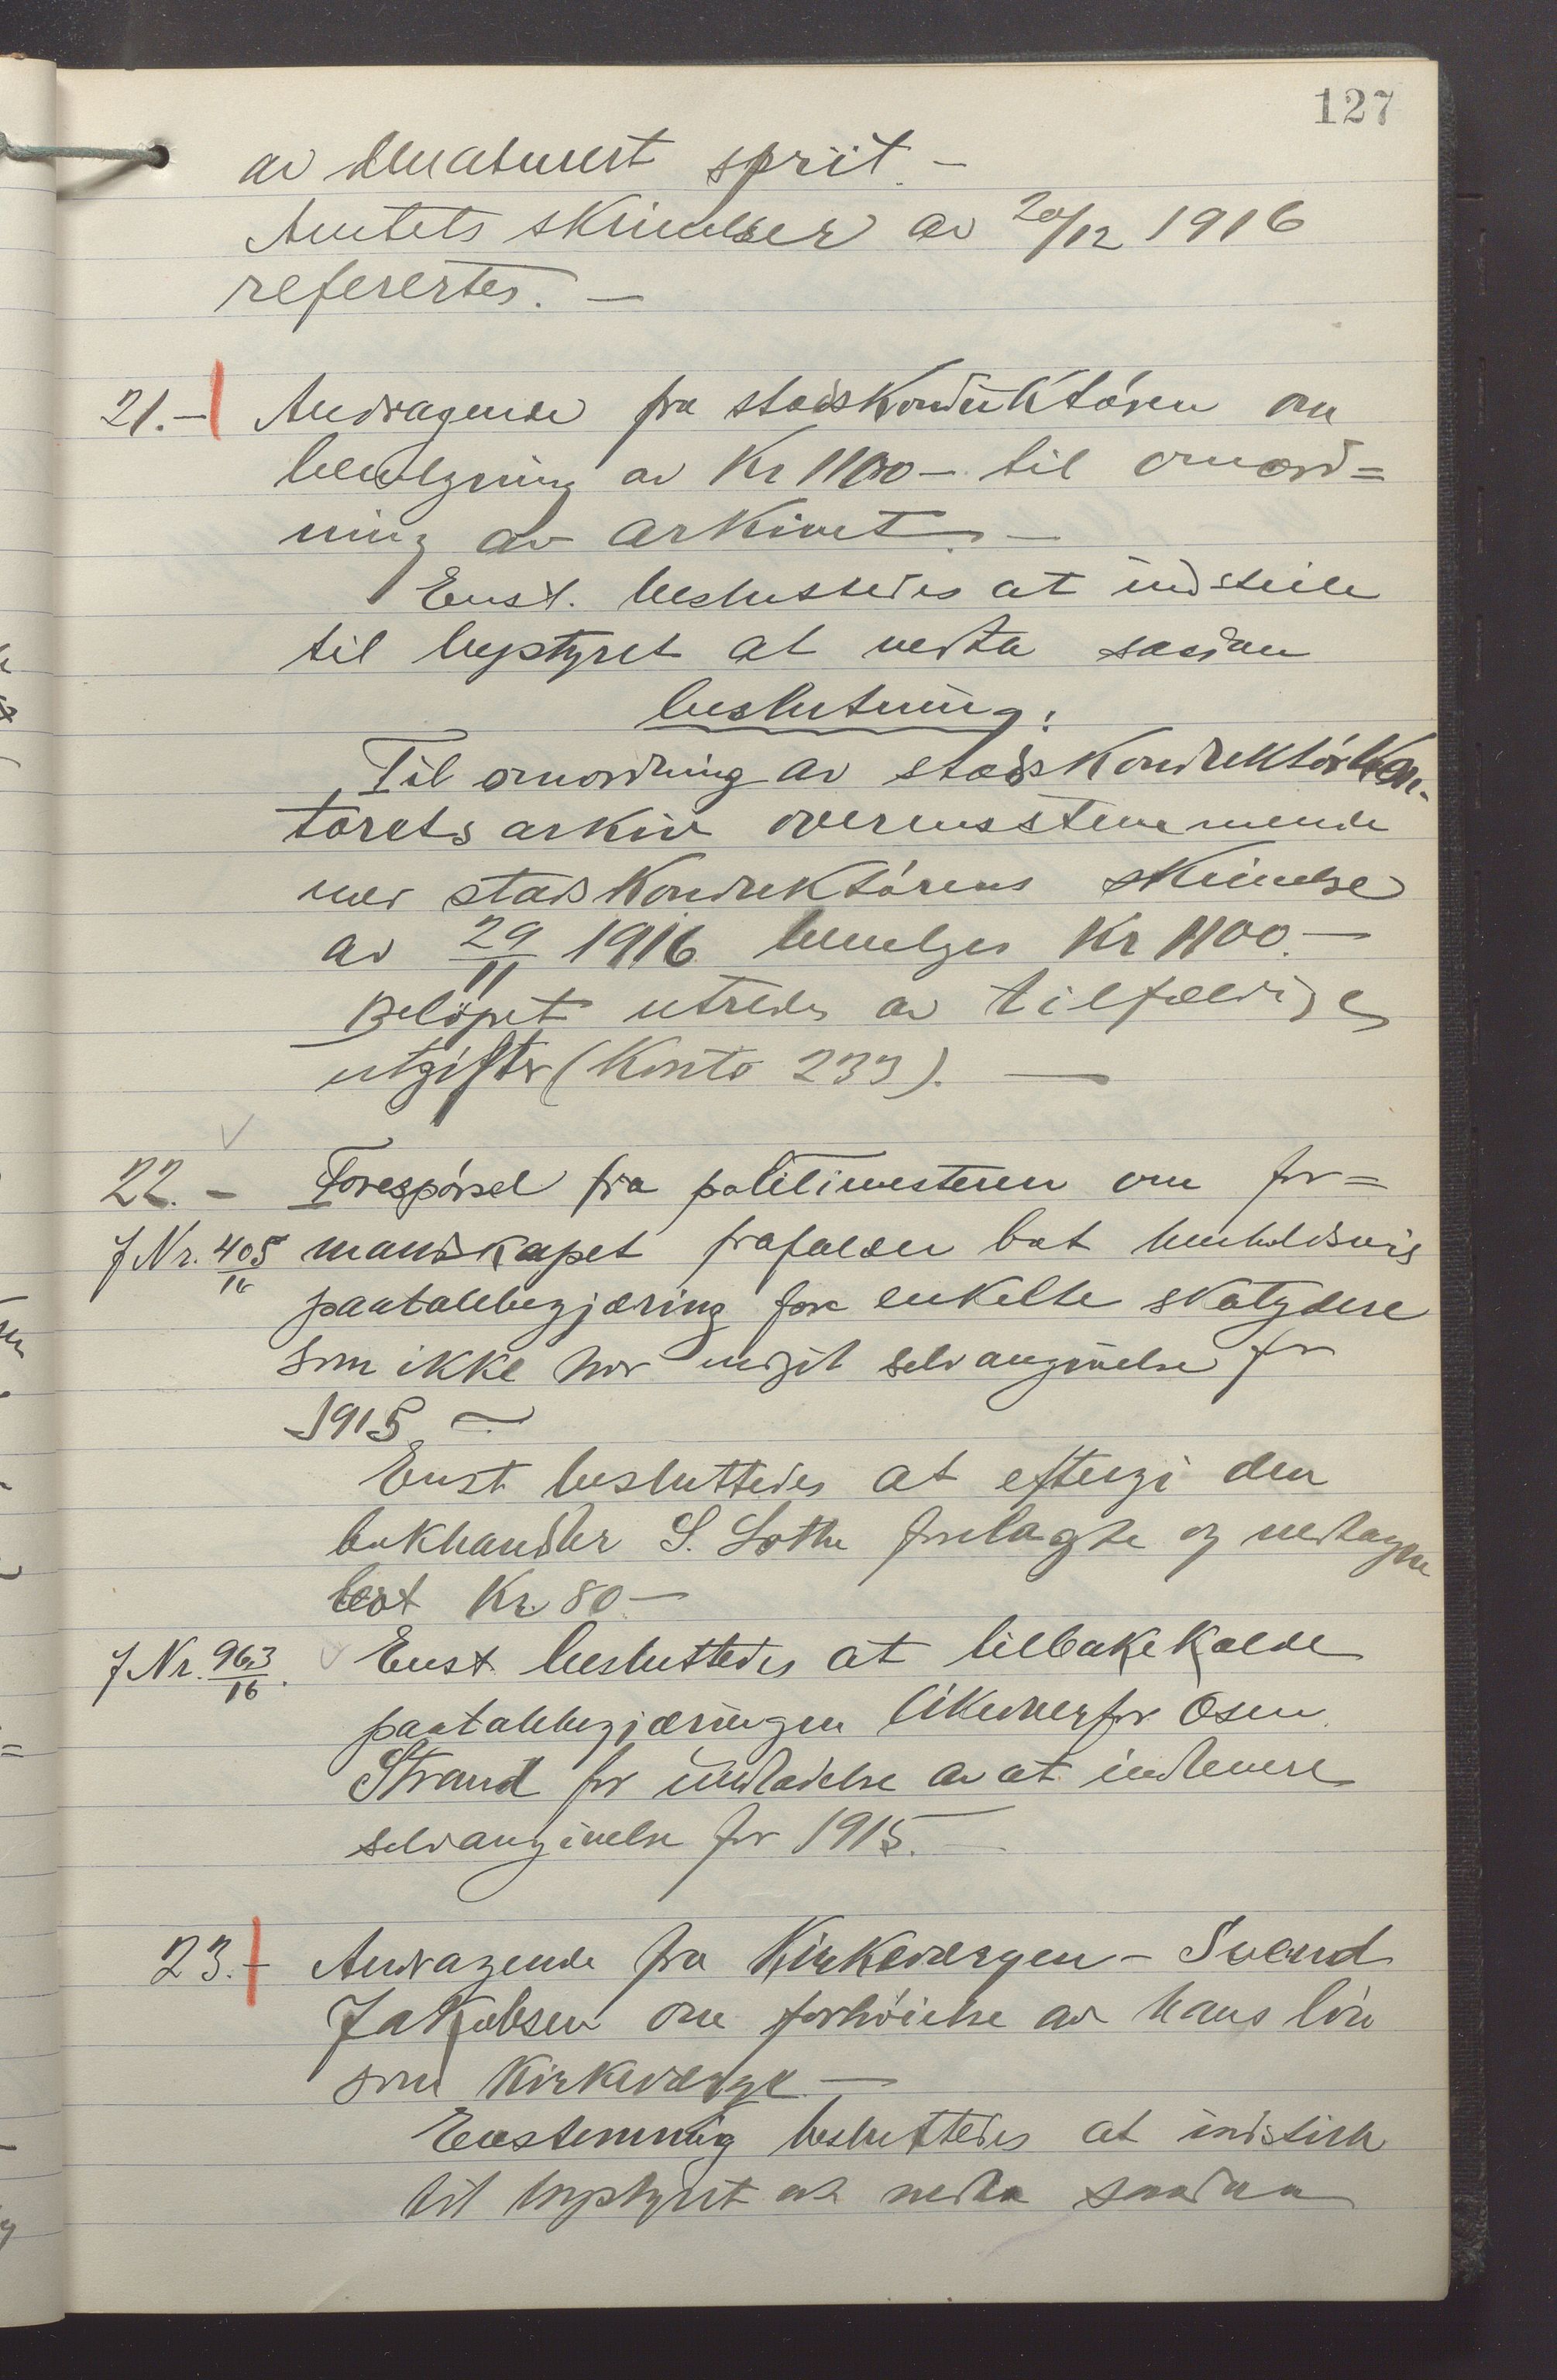 127
av denaturert sprit. -
Amtets skrivelser av 20/12 1916
referertes. -
21. - Andragende fra stadskonduktören om
bevilgning av Kr 1100 - til omord=
ning av arkivet. -
Enst. besluttedes at indstille
til bystyret at vedta saadan
beslutning:
Til omordning av stadskonduktörkon-
torets arkiv overensstemmende
med stadskonduktörens skrivelse
av 29/11 1916 bevilges Kr 1100. -
Belöpet utredes av tilfældige
utgifter (Konto 233). -
22. - Forespörsel fra politimesteren om for=
J Nr. 405/16 mandskapet frafalder bot henholdsvis
paatalebegjæring for enkelte skatydere
som ikke har indgit selvangivelse for
1915. -
Enst. besluttedes at eftergi den
bokhandler S. Lothe forelagte og vedtagne
bot Kr. 80. -
J Nr. 963/16. Enst. besluttedes at tilbakekalde
paatalebegjæringen likeoverfor Osen
Strand for undladelse av at indlevere
selvangivelse for 1915. -
23. - Andragende fra Kirkevergen - Svend
Jakobsen om forhöielse av hans lön
som Kirkeverge. -
Eenstemmig besluttedes at indstille
til bystyret at vedta saadan